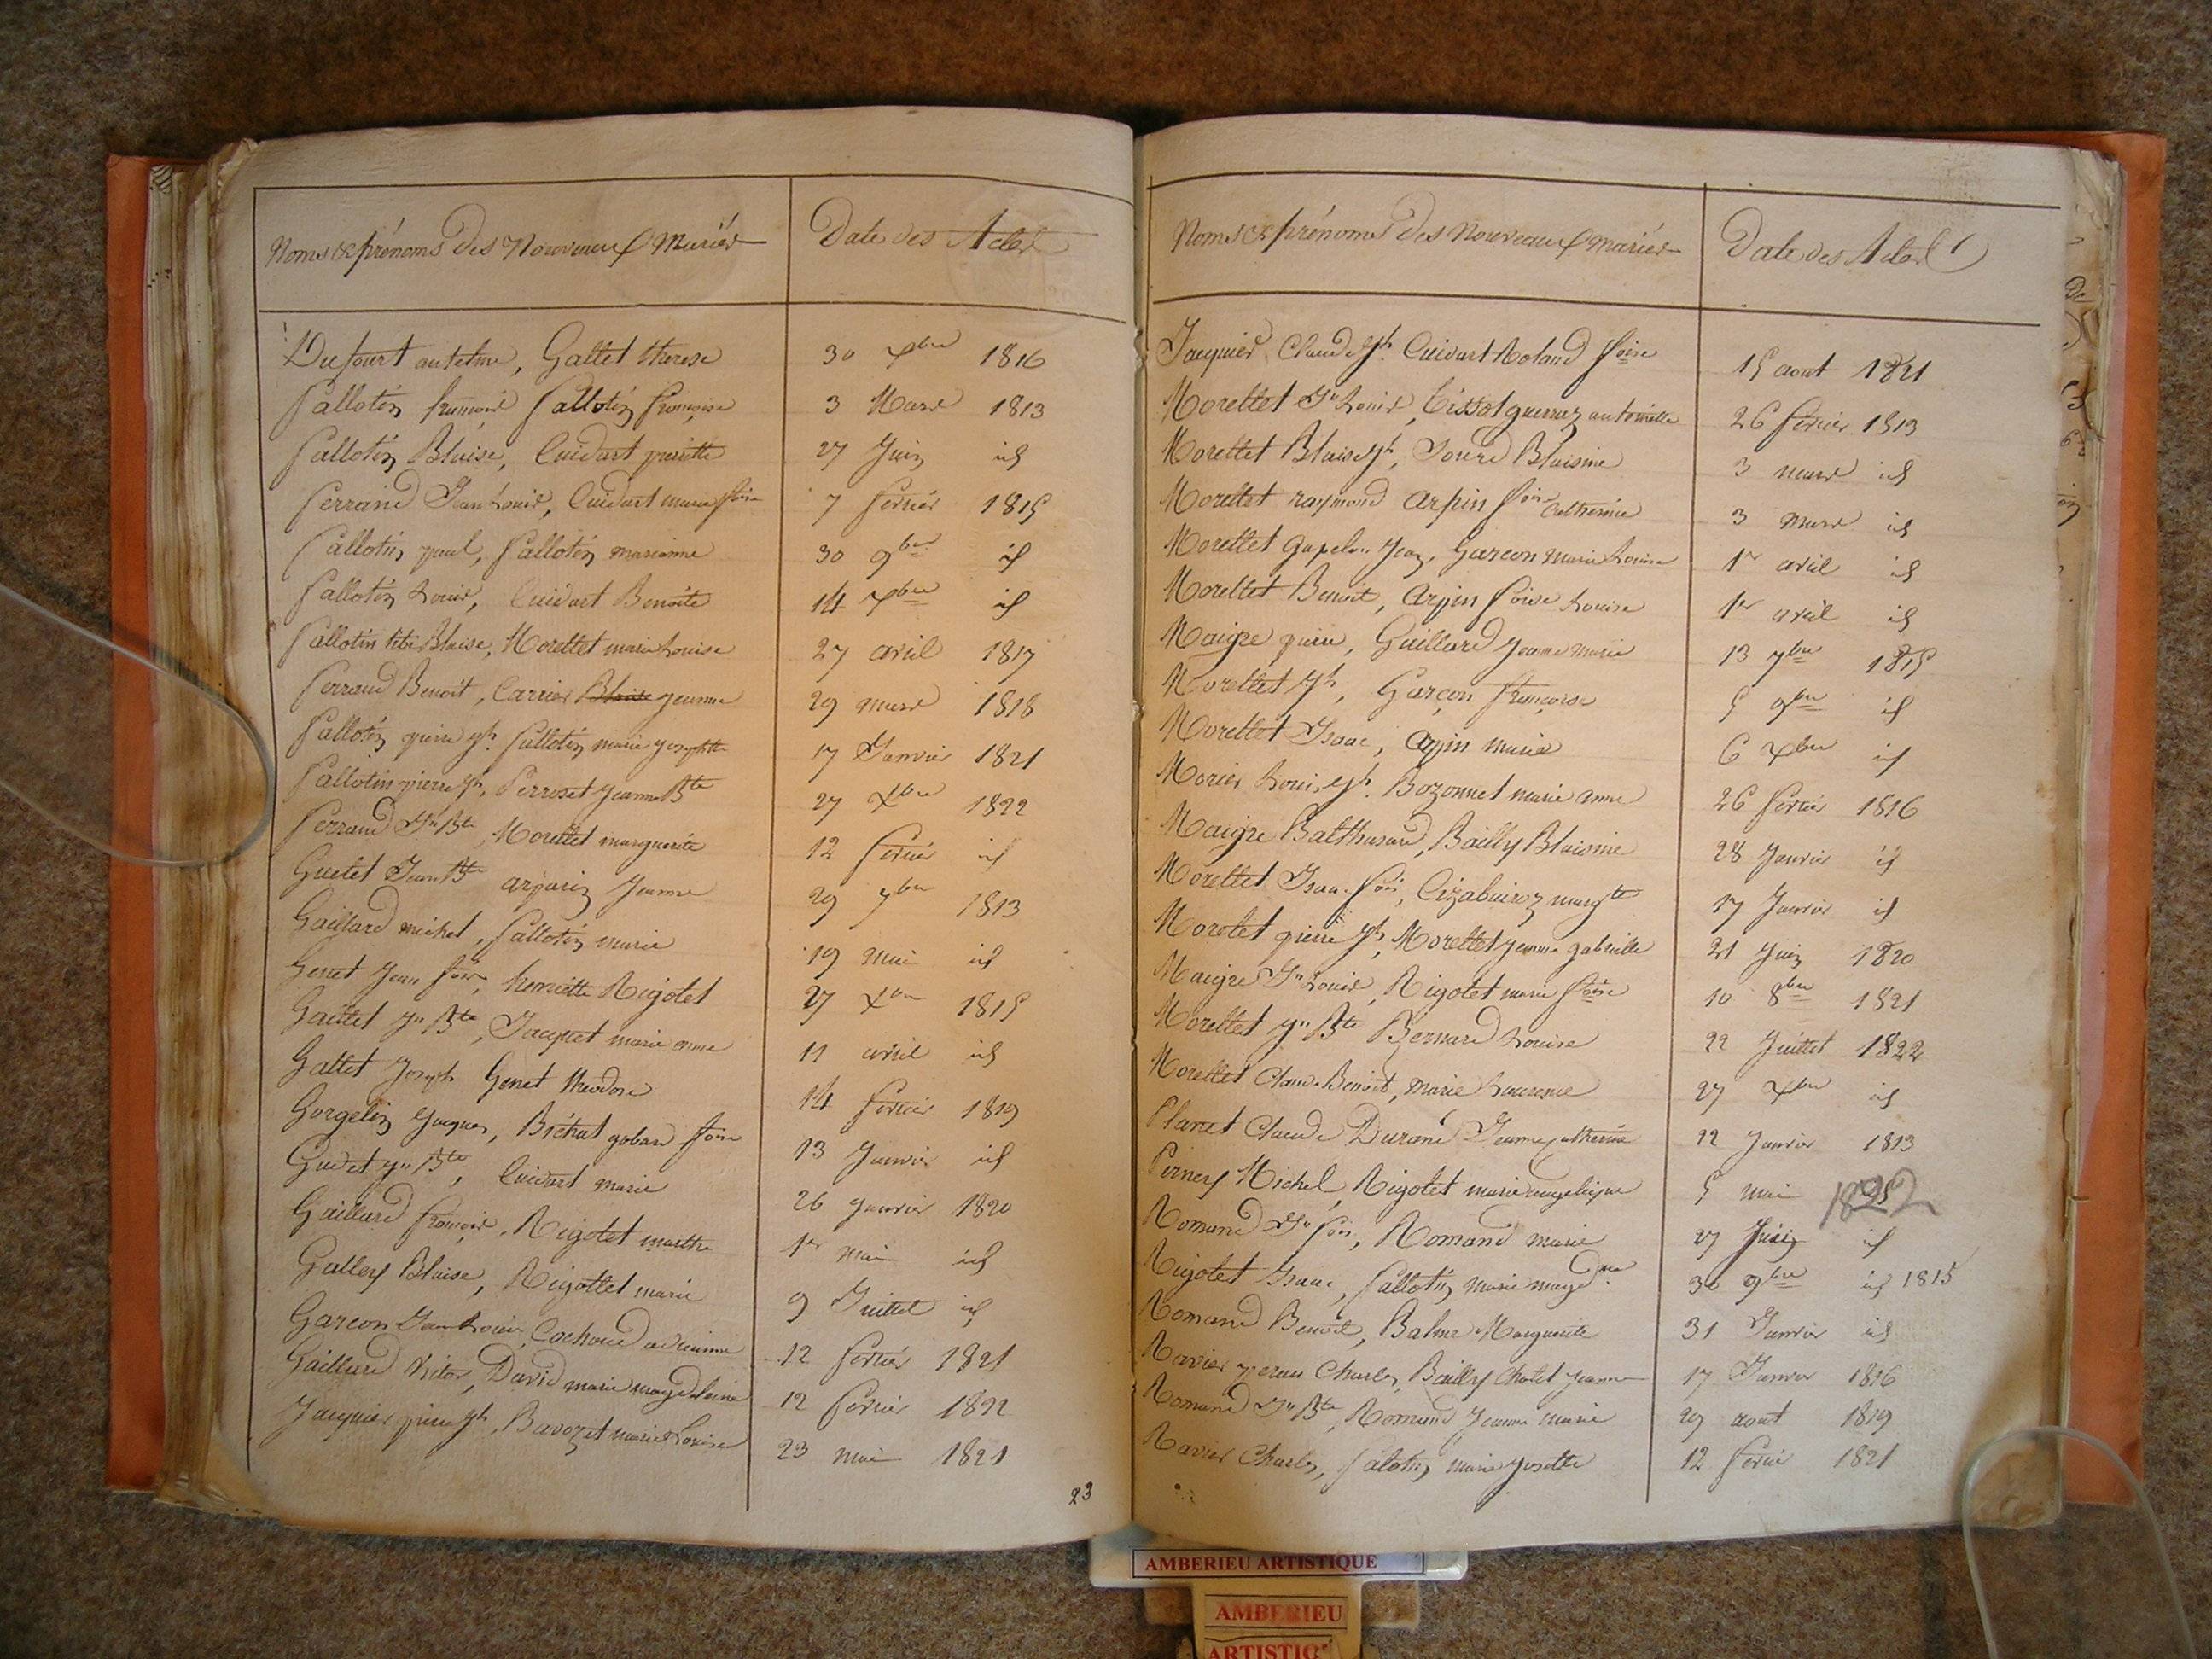 Noms & prénoms des Nouveaux Mariés
Date des Actes
Dufourt antelme, Gallet therese 30 xbre 1816
fallotin françois fallotin françoise 3 Mars 1813
fallotin Blaise, Cuidart pierrette 27 Juin id
ferrand Jean Louis, Cuidart marie foise 7 fevrier 1815
fallotin paul, fallotin marianne 30 9bre id
fallotin Louis, Cuidart Benoite 14 xbre id
fallotin titi Blaise, Morellet marie Louise 27 avril 1817
ferrand Benoit, Carrier Blaise jeanne 29 mars 1818
fallotin pierre jh. fallotin marie josephte 17 Janvier 1821
fallotin pierre jh, Perroset jeanne Bte 27 xbre 1822
ferrand Jn Bte, Morellet marguerite 12 fevrier id
Guetet Jean Bte arparin Jeanne 29 7bre 1813
Gaillard michel, fallotin marie 19 mai id
Genet Jean fois, henriette Rigotet 27 xbre 1815
Gallet jn Bte, Jacquet marie anne 11 avril id
Gallet Joseph Genet theodore 14 fevrier 1819
Gorgelin jacques, Bichat goban foise 13 Janvier id
Guetet jn Bte, Cuidart marie 26 janvier 1820
Gaillard françois, Rigotet marthe 1er mai id
Galley Blaise, Rigottet marie 9 Juillet id
Garcon Jean Louis, Cochoud adrianne 12 fevrier 1821
Gaillard Victor, David marie magdeleine 12 fevrier 1822
Jacquier pierre jh, Bavozet marie Louise 23 mai 1821
23
Noms & prénoms des Nouveaux mariés
Date des Actes
Jacquier Claude jh. Cuidart Roland foise 15 aout 1821
Morellet Jn Louis, Tissot guerraz antoinette 26 fevrier 1813
Morellet Blaise jh, Joure Blaisine 3 mars id
Morellet raymond arpin foise Catherine 3 mars id
Morellet Jean, Garcon Marie Louise 1er avril id
Morellet Benoit, arpin foise Louise 1er avril id
Maigre pierre, Gaillard Jeanne Marie 13 7bre 1815
Morellet jh, Garçon françoise 5 9bre id
Morellet Isaac, arpin marie 6 xbre id
Morier Louis jh. Bozonnet marie anne 26 fevrier 1816
Maigre Balthasard, Bailly Blaisine 28 Janvier id
Morellet Isaac fois, margte 17 Janvier id
Morelet pierre jh, Morellet jeanne gabrielle 21 Juin 1820
Maigre Jn Louis, Rigotet marie foise 10 8bre 1821
Morellet jn Bte Bernard Louise 22 Juillet 1822
Morellet Claude Benoit, Marie Laurence 27 xbre id
Planet Claude Durand Jeanne catherine 22 Janvier 1813
Perney Michel, Rigotet marie angelique 5 mai 1822
Romand Jn fois, Romand marie 27 Juin id
Rigotet Isaac, fallotin marie magdne 30 9bre id 1815
Romand Benoit, Balme Marguerite 31 Janvier id
Ravier Charles, Bailly Chatel jeanne 17 Janvier 1816
Romand Jn Bte, Romand Jeanne marie 29 aout 1819
Ravier Charles, falotin marie josette 12 fevrier 1821
AMBERIEU ARTISTIQUE
AMBERIEU
ARTISTIQ